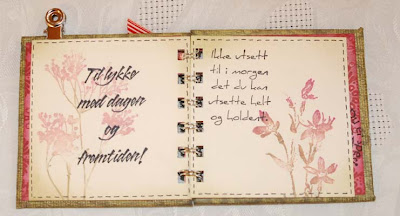 Til lykke
med dagen
og
fremtiden!
Ikke utsett
til i morgen
det du kan
utsette helt
og holdent.